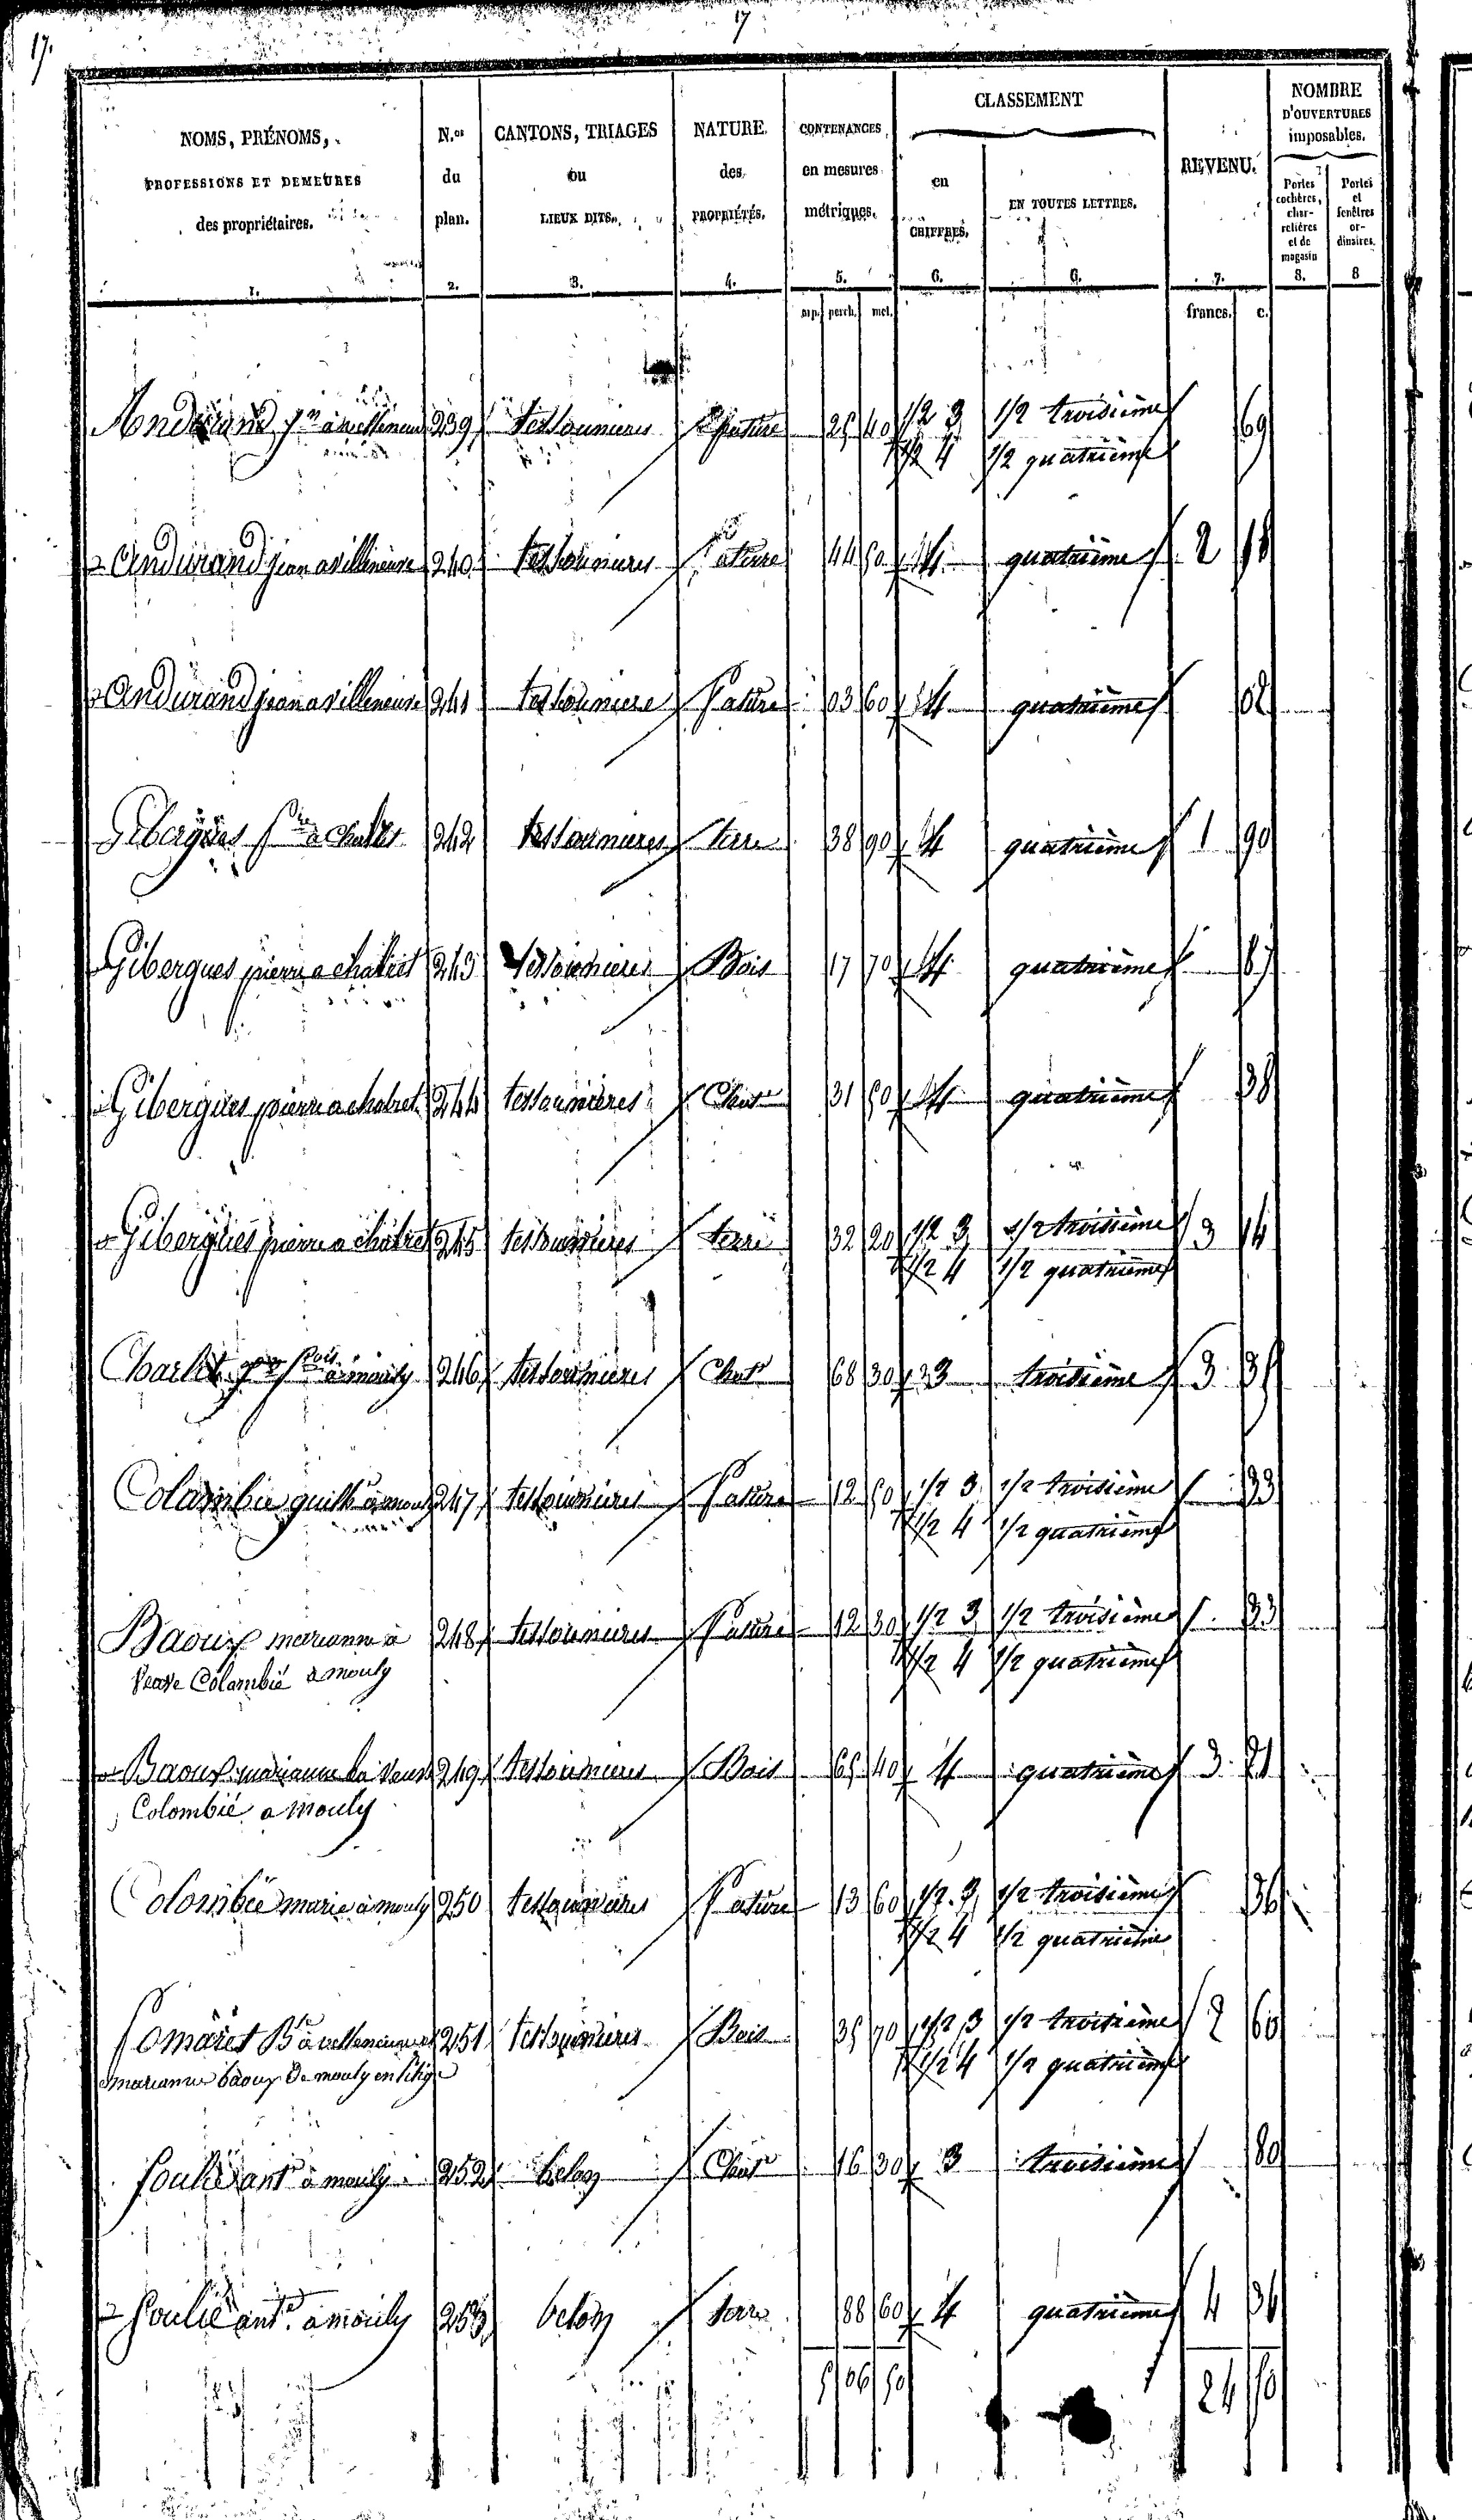 17.
17
NOMS, PRÉNOMS, PROFESSIONS ET DEMEURES des propriétaires. 1.
N.os du plan. 2.
CANTONS, TRIAGES ou LIEUX DITS. 3.
NATURE des PROPRIÉTÉS. 4.
CONTENANCES en mesures métriques. 5.
CLASSEMENT
en CHIFFRES. 6.
EN TOUTES LETTRES. 6.
REVENU. 7.
NOMBRE D'OUVERTURES imposables.
Portes cochères, charretières et de magasin 8.
Portes et fenêtres ordinaires. 8
arp. perch. met. francs. c.
239 tessounieres pature 25 40 1/2 3 1/2 troisième 69
1/2 4 1/2 quatrième
Andurand jean a villeneuve 240 tessounieres 44 50 4 quatrième 2 18
Andurand jean a villeneuve 241 tessouniere Pature 03 60 4 quatrième 02
Gibergues a 242 tessounieres terre 38 90 4 quatrième 1 90
Gibergues pierre a chatret 243 tessounieres Bois 17 70 4 quatrième 87
Gibergues pierre a chatret 244 tessounières Chat 31 60 4 quatrième 38
Gibergues pierre a chatret 245 tessounieres terre 32 20 1/2 3 1/2 troisième 3 14
1/2 4 1/2 quatrième
à mouly 246 tessounieres Chat 68 30 3 troisième 3 35
Colombie à mouly 247 tessounieres Pature 12 50 1/2 3 1/2 troisième 33
1/2 4 1/2 quatrième
Baoux marianne à 248 tessounieres Pature 12 30 1/2 3 1/2 troisième 33
Veuve Colombié a mouly 1/2 4 1/2 quatrième
Baoux marianne la Veuve 249 tessounieres Bois 65 40 4 quatrième 3 21
Colombié a mouly
Colombié marie à mouly 250 tessounieres Pature 13 60 1/2 3 1/2 troisième 36
1/2 4 1/2 quatrième
251 tessounieres Bois 35 70 1/2 3 1/2 troisième 2 60
marianne baoux de mouly en litige 1/2 4 1/2 quatrième
Soulié ant à mouly 252 belon Chat 16 30 3 troisième 80
Soulié ant. a mouly 253 belon terre 88 60 4 quatrième 4 34
5 06 50 24 50